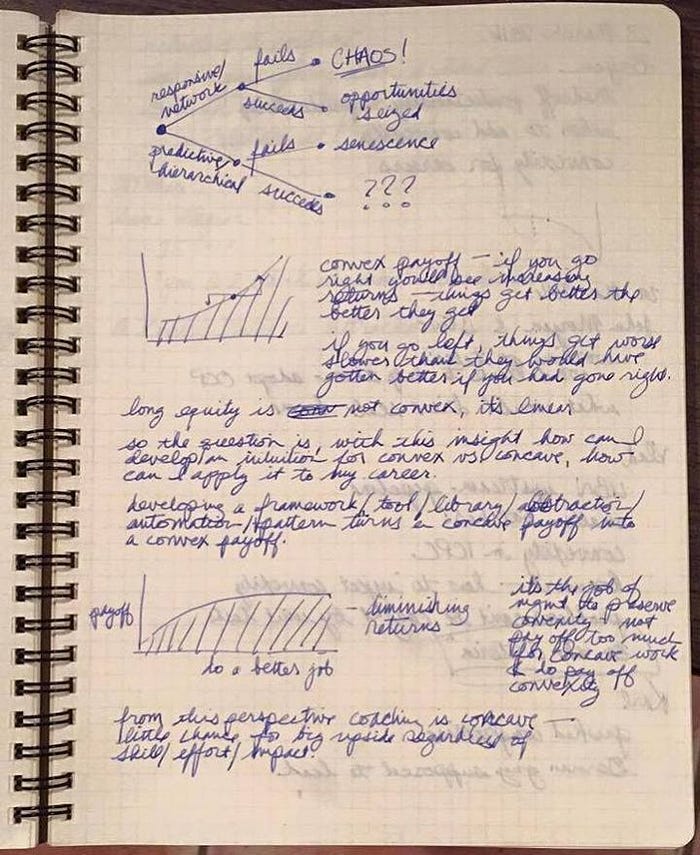 responsive/
network
fails
CHAOS!
succeeds
opportunities
seized
predictive
hierarchical
fails
senescence
succeeds
???
convex payoff — if you go
right you'll see increasing
returns — things get better the
better they get
if you go left, things get worse
slower than they would have
gotten better if you had gone right.
long equity is not convex, it's linear
so the question is, with this insight how can I
develop an intuition for convex vs concave, how
can I apply it to my career.
developing a framework/tool/library/abstraction/
automation/pattern turns a concave payoff into
a convex payoff.
payoff
diminishing
returns
do a better job
it's the job of
mgmt to preserve
convexity not
pay off too much
for concave work
& to pay off
convexity
from this perspective coaching is concave —
little chance for big upside regardless of
skill/effort/impact.